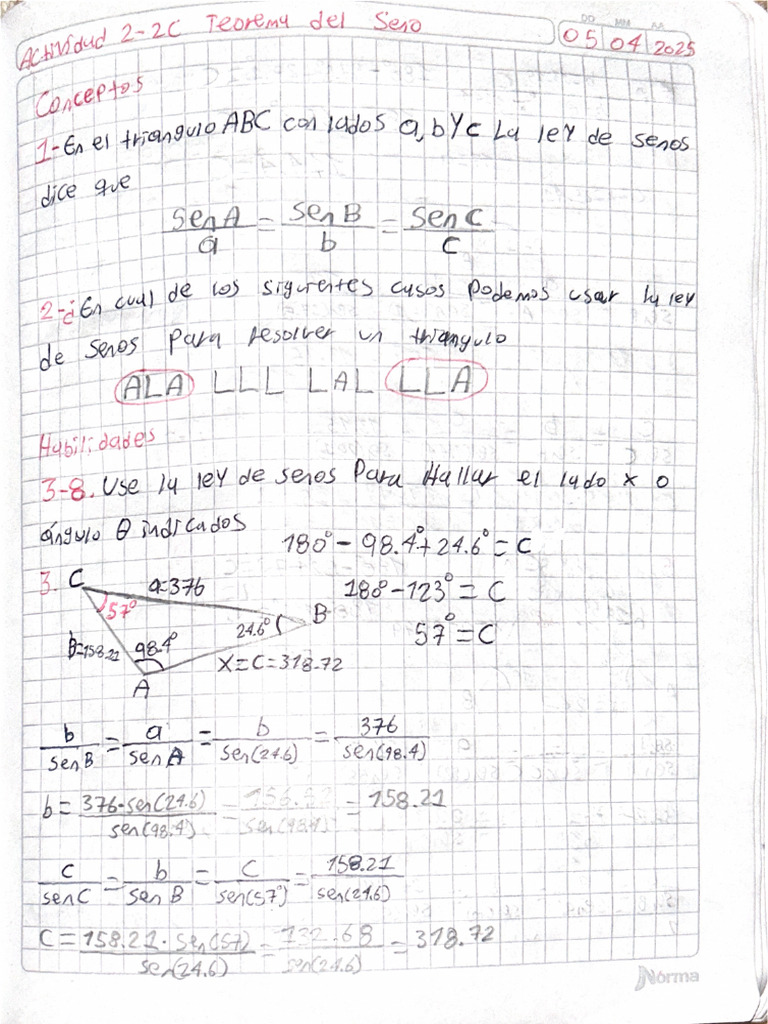 Actividad 2-2C Teorema del Seno
DD MM AA
05 04 2025
Conceptos
1-En el triangulo ABC con lados a, b y c La ley de senos
dice que
SenA/a = SenB/b = SenC/c
2-¿En cual de los siguientes casos Podemos usar la ley
de senos Para resolver un triangulo
ALA LLL LAL LLA
Habilidades
3-8. Use la ley de senos Para Hallar el lado x o
ángulo θ indicados
180° - 98.4° + 24.6° = C
3. C a=376
180° - 123° = C
57°
24.6° B
57° = C
b=158.21 98.4°
x=C=318.72
A
b/senB = a/senA = b/sen(24.6) = 376/sen(98.4)
b = 376·sen(24.6)/sen(98.4) = 156.52/sen(98.4) = 158.21
c/senC = b/senB = C/sen(57°) = 158.21/sen(24.6)
C = 158.21·sen(57)/sen(24.6) = 132.68/sen(24.6) = 318.72
Norma